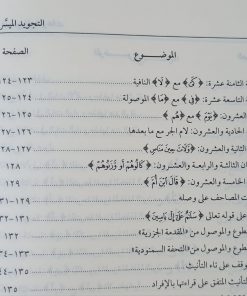 التجويد الميسَّر
الموضوع
الصفحة
الثامنة عشرة: ﴿كَيْ﴾ مع ﴿لَا﴾ النافية
التاسعة عشرة: ﴿فِي﴾ مع ﴿مَا﴾ الموصولة
العشرون: ﴿يَوْمَ﴾ مع ﴿هُم﴾
الحادية والعشرون: لام الجر مع ما بعدها ١٢٦-١٢٧
الثانية والعشرون: ﴿وَلَاتَ حِينَ مَنَاصٍ﴾
الثالثة والرابعة والعشرون: ﴿كَالُوهُمْ أَو وَّزَنُوهُمْ﴾ ١٢٨
الخامسة والعشرون: ﴿قَالَ ابْنَ أُمَّ﴾ ١٢٩
المصاحف على وصله
على قوله تعالى ﴿سَلَامٌ عَلَىٰ إِلْ يَاسِينَ﴾
والموصول من «المقدمة الجزرية» ١٣٢
والموصول من «التحفة السمنودية»
على تاء التأنيث
التأنيث المتفق على قراءتها بالإفراد ١٣٥